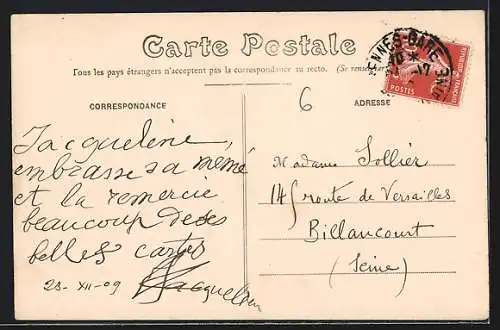 Carte Postale
Tous les pays étrangers n'acceptent pas la correspondance au recto. (Se renseigner
CORRESPONDANCE
ADRESSE
6
RENNES-GARE
POSTES
Jacqueline,
embrasse sa mémé
et la remercie
beaucoup de ses
belles cartes
Jacqueline
23 - XII - 09
Madame Sollier
145 route de Versailles
Billancourt
(Seine)